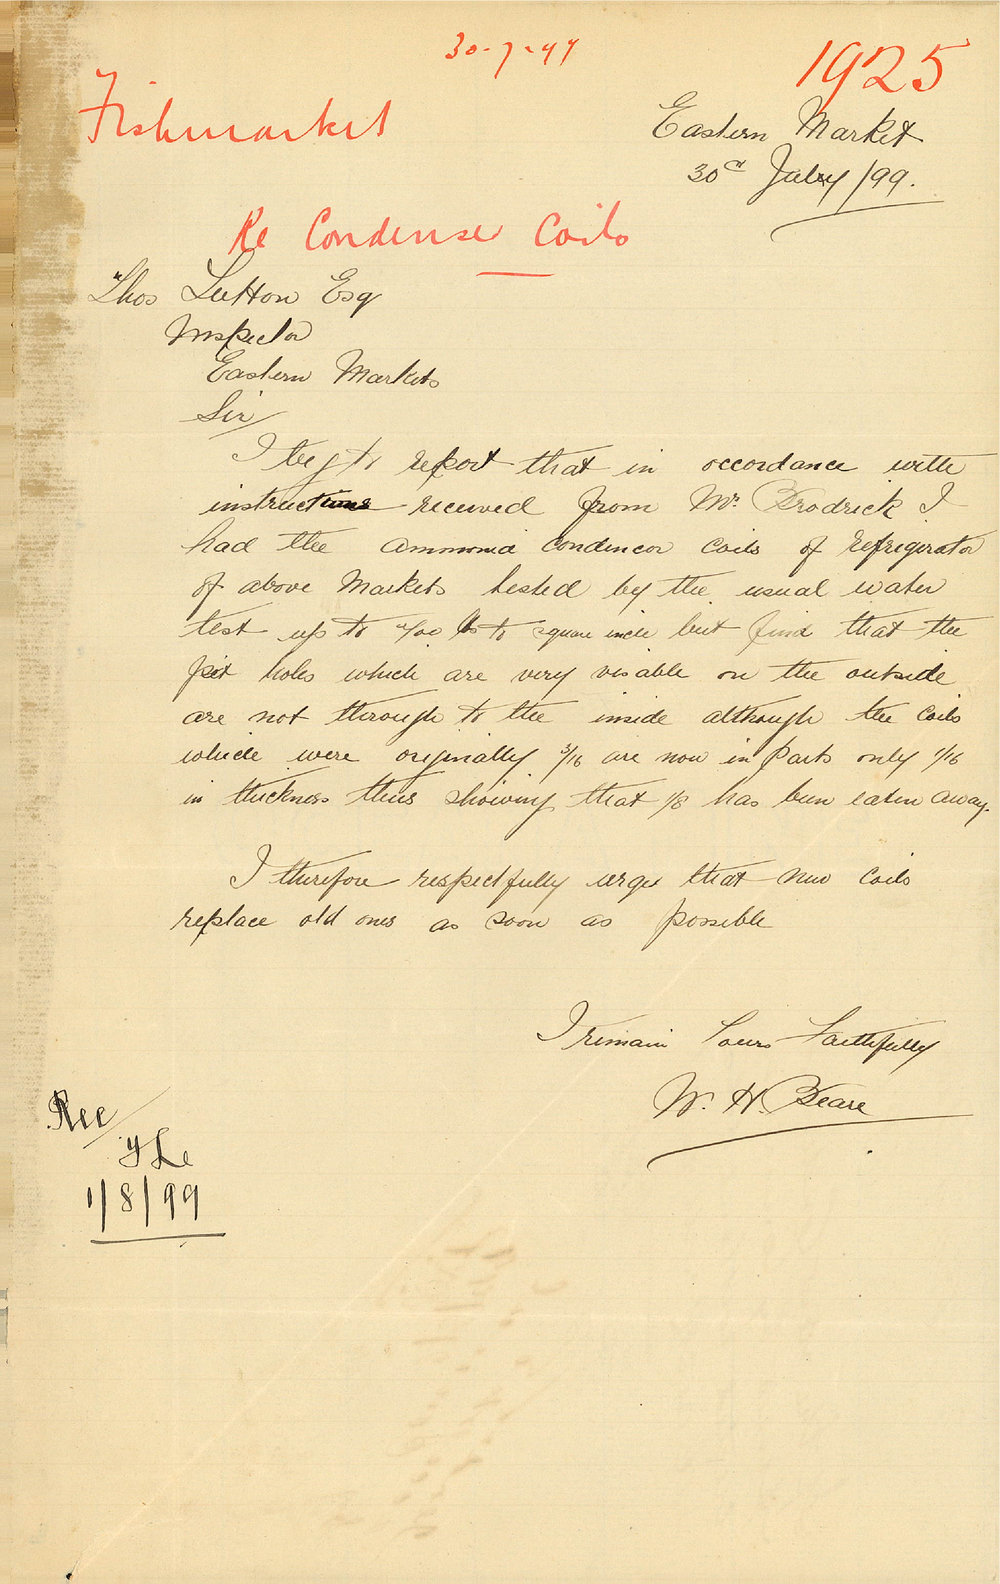 30-7-99
1925
Fishmarket
Eastern Market
30th July /99.
Re Condenser Coils
Thos Lutton Esq
Inspector
Eastern Markets
Sir/
I beg to report that in accordance with
instructions received from Mr. Brodrick I
had the ammonia condencor coils of refrigerator
of above Markets tested by the usual water
test up to 400 lbs to square inch but find that the
pit holes which are very visable on the outside
are not through to the inside although the coils
which were originally 3/16 are now in parts only 1/16
in thickness thus showing that 1/8 has been eaten away.
I therefore respectfully urge that new coils
replace old ones as soon as possible
I remain Yours Faithfully
W. H. Beare
Rec
1/8/99